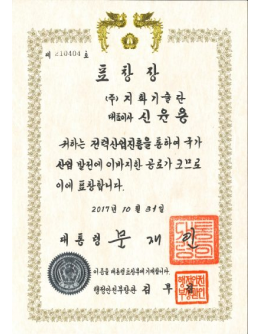 제 210404 호
표 창 장
(주) 지화기술단
대표이사 신 윤 용
귀하는 전력산업진흥을 통하여 국가
산업 발전에 이바지한 공로가 크므로
이에 표창합니다.
2017년 10 월 31일
대 통 령 문 재 인
이 증을 대통령 표창부에 기재합니다.
행정안전부장관 김 부 겸